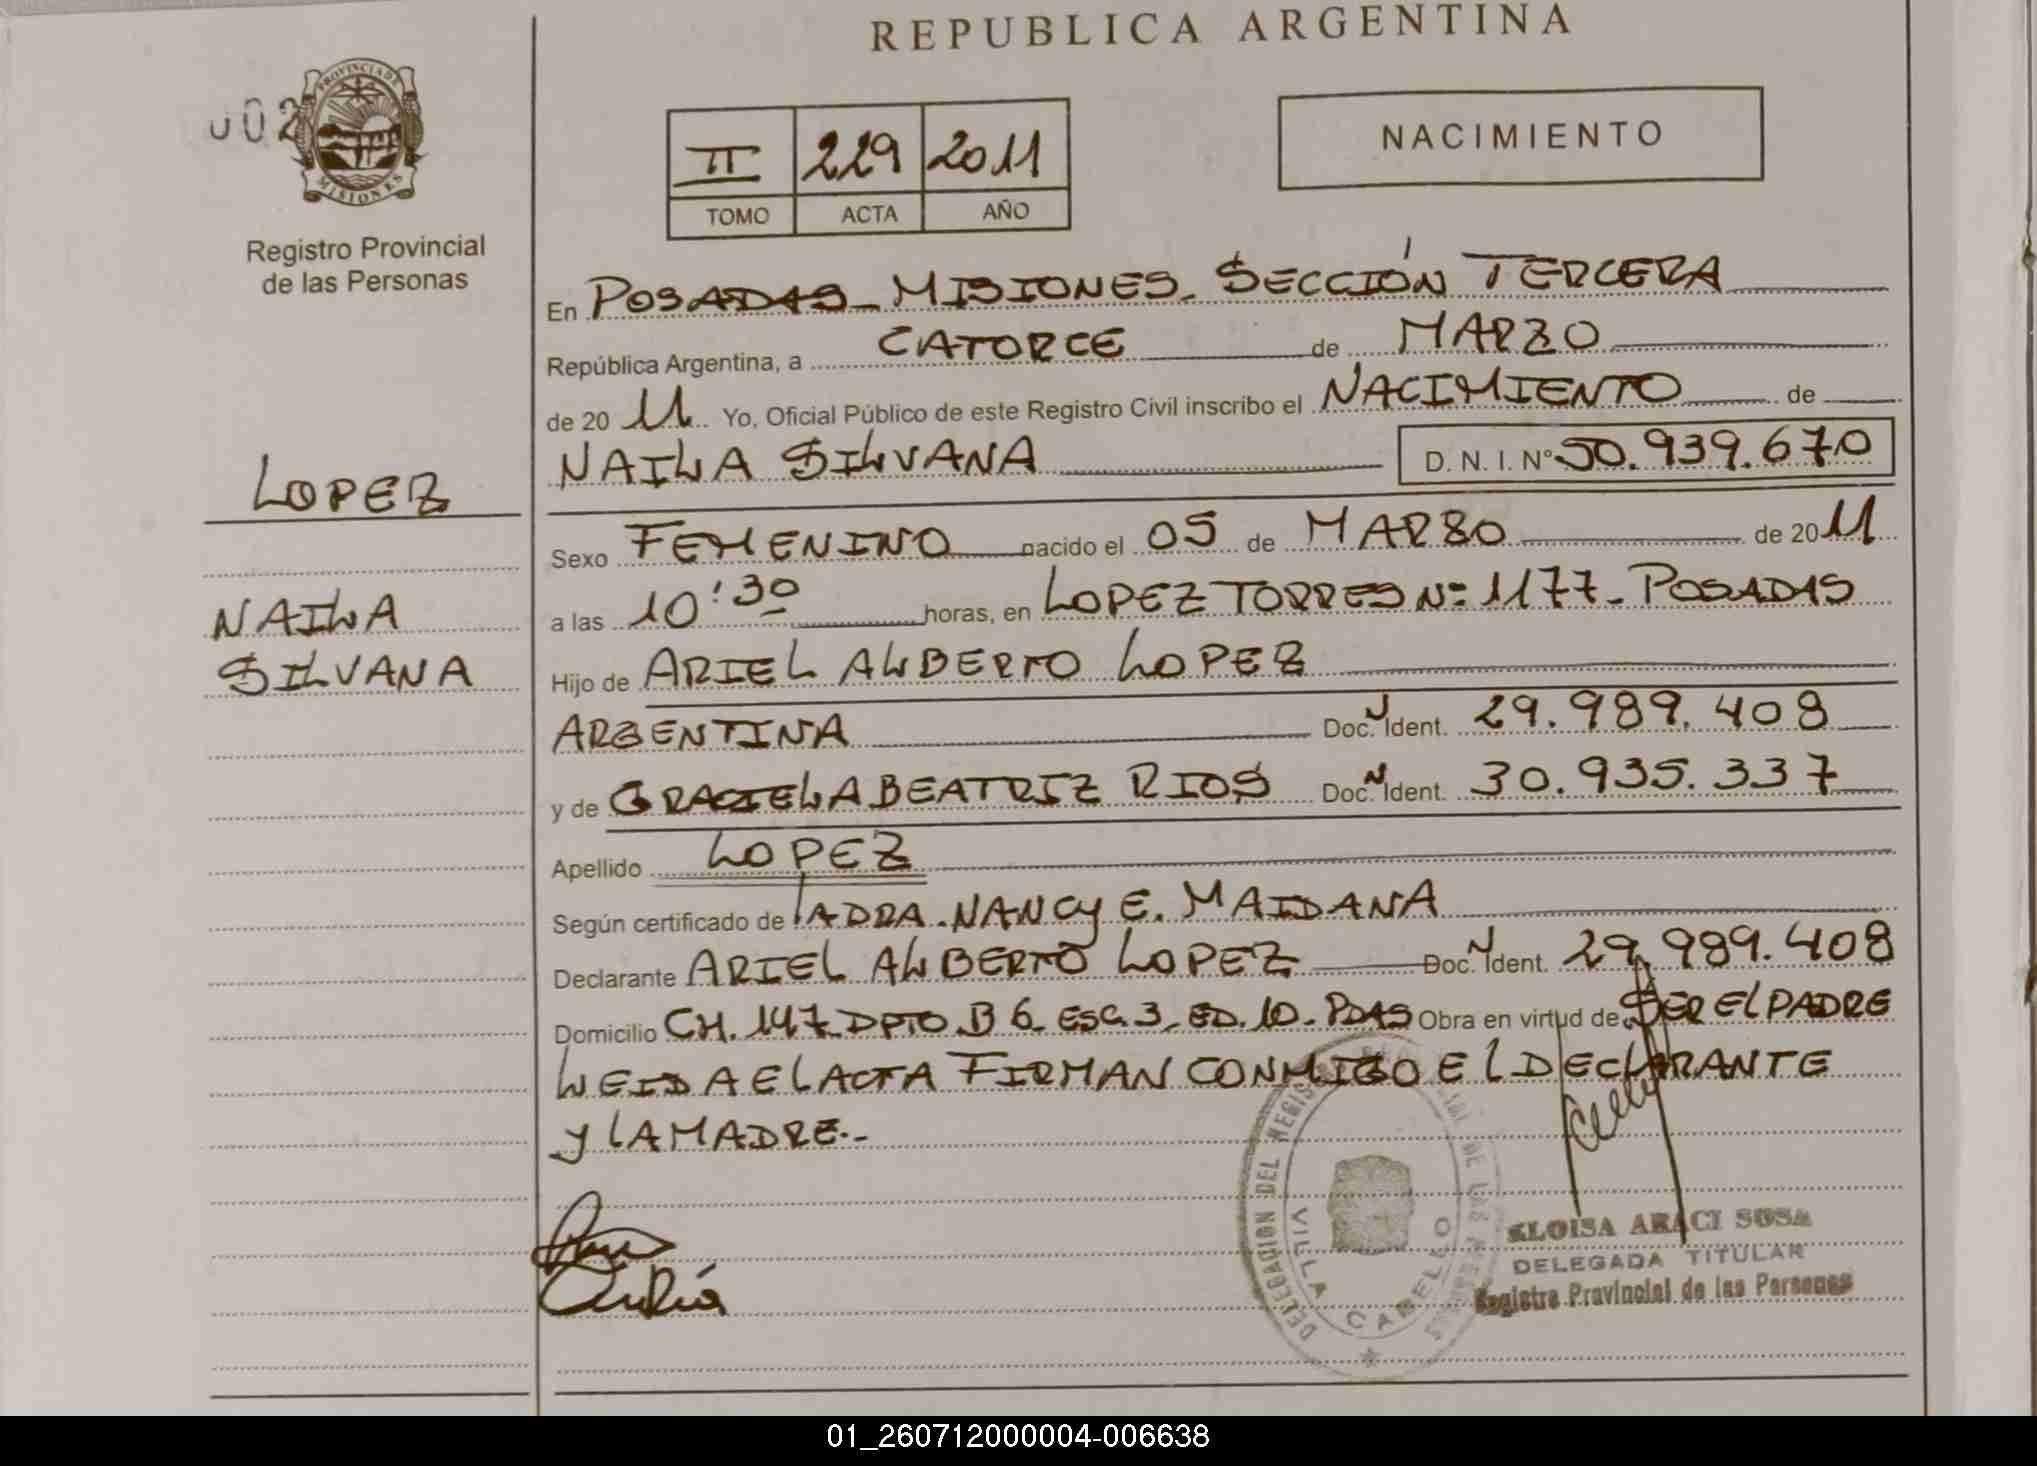 REPUBLICA ARGENTINA
002
PROVINCIA DE
MISIONES
Registro Provincial
de las Personas
II 229 2011
TOMO ACTA AÑO
NACIMIENTO
En POSADAS - MISIONES - SECCIÓN TERCERA
República Argentina, a CATORCE de MARZO
de 20 11 Yo, Oficial Público de este Registro Civil inscribo el NACIMIENTO de
NAILA SILVANA D. N. I. Nº 50.939.670
LOPEZ
NAILA
SILVANA
Sexo FEMENINO nacido el 05 de MARZO de 20 11
a las 10:30 horas, en LOPEZ TORRES Nº 1177 - POSADAS
Hijo de ARIEL ALBERTO LOPEZ
ARGENTINA Doc. N Ident. 29.989.408
y de GRACIELA BEATRIZ RIOS Doc. N Ident. 30.935.337
Apellido LOPEZ
Según certificado de LA DRA. NANCY E. MAIDANA
Declarante ARIEL ALBERTO LOPEZ Doc. N Ident. 29.989.408
Domicilio CH. 147 DPTO B 6 - ESC. 3 - ED. 10 - PDAS Obra en virtud de SER EL PADRE
LEIDA EL ACTA FIRMAN CONMIGO EL DECLARANTE
Y LA MADRE.-
DELEGACION DEL REGISTRO PROVINCIAL DE LAS PERSONAS
VILLA CABELLO
ELOISA ARACI SOSA
DELEGADA TITULAR
Registro Provincial de las Personas
01_260712000004-006638